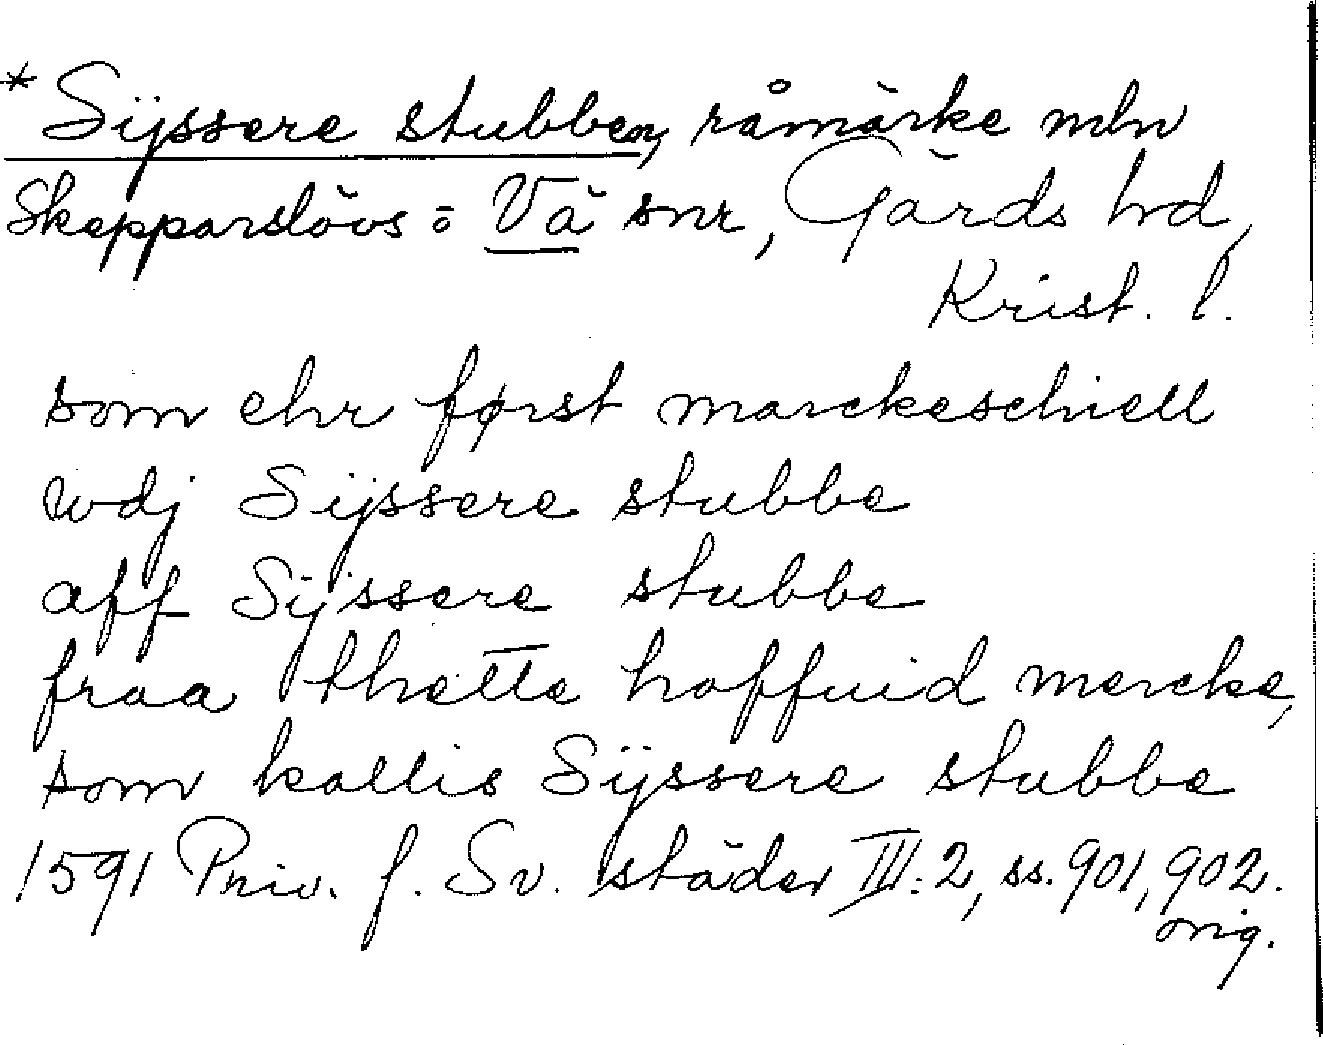 *Sijssere stubben, råmärke mln
Skepparslövs o Vä snr, Gärds hd,
Krist. l.
som ehr først marckeschiell
wdj Sijssere stubbe
aff Sijssere stubbe
fraa thette hoffuid mercke,
som kallis Sijssere stubbe
1591 Priv. f. Sv. städer III:2, ss. 901, 902.
orig.